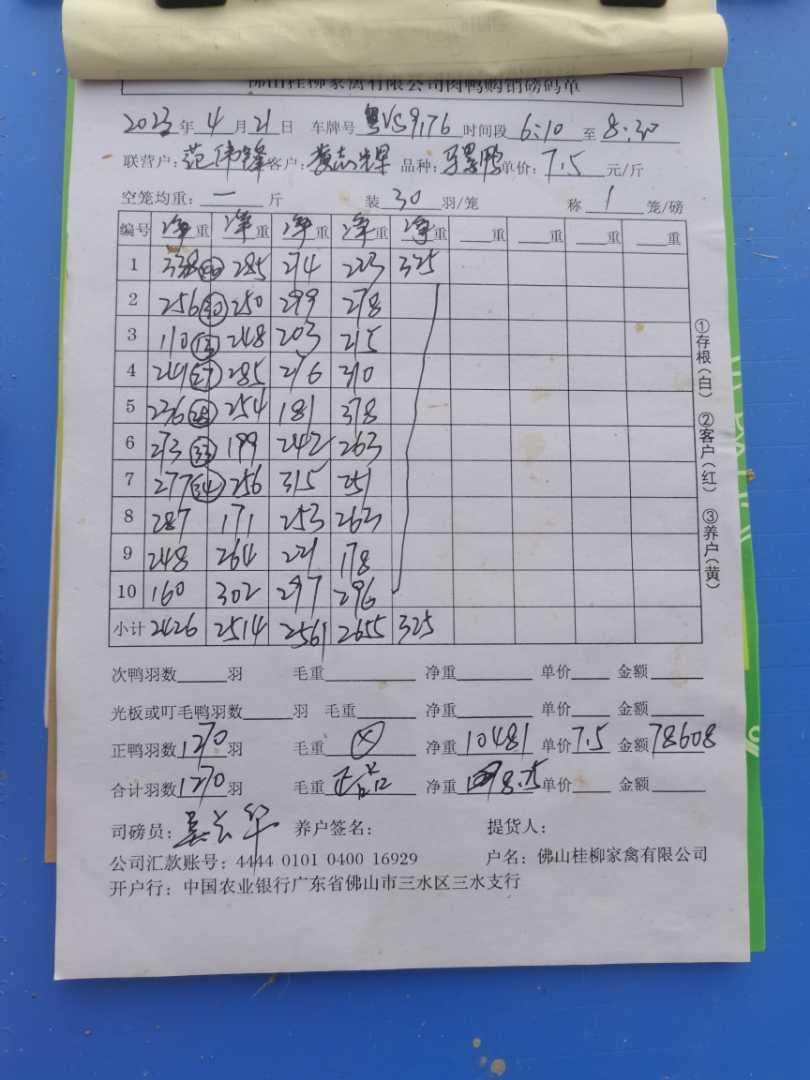 佛山桂柳家禽有限公司肉鸭购销磅码单
2023年4月21日 车牌号 粤VS9176 时间段 6:10 至 8:30
联营户: 范伟锋 客户: 黄志 品种: 单价: 7.5 元/斤
空笼均重: 一 斤 装 30 羽/笼 称 1 笼/磅
编号 净重 净重 净重 净重 净重 重 重 重 重
1 338 285 274 223 325
2 256 30 250 299 278
3 110 13 248 203 215
4 249 27 285 276 310
5 236 28 254 181 378
6 273 33 199 242 263
7 277 34 256 315 251
8 287 171 253 263
9 248 264 221 178
10 160 302 297 296
小计 2426 2514 2561 2655 325
次鸭羽数 羽 毛重 净重 单价 金额
光板或叮毛鸭羽数 羽 毛重 净重 单价 金额
正鸭羽数 1270 羽 毛重 净重 10481 单价 7.5 金额 78608
合计羽数 1270 羽 毛重 净重 8.25 单价 金额
司磅员: 养户签名: 提货人:
公司汇款账号: 4444 0101 0400 16929 户名: 佛山桂柳家禽有限公司
开户行: 中国农业银行广东省佛山市三水区三水支行
①存根(白) ②客户(红) ③养户(黄)